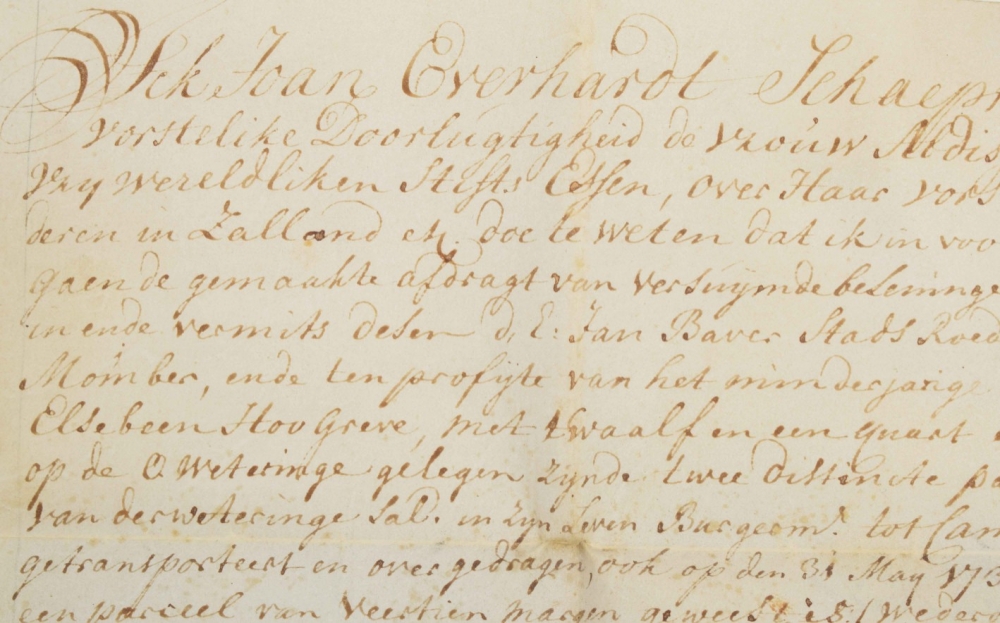 Ick Joan Everhardt Schaep
vorstelike Doorlugtigheid de vrouw Abdis
vry wereldliken Stifts Essen, over Haar vors
deren in Zalland etz. doe te weten dat ik in voo
gaende gemaakte afdragt van versuymde beleninge
in ende vermits desen d. E: Jan Baver Stads Roed
Momber, ende ten profijte van het minderjarige
Elsebeen Hovgreve, met twaalf en een quart
op de O Weteringe gelegen zynde twee distincte pa
van der weteringe Sal. in zyn Leven Burgermr. tot Cam
getransporteert en overgedragen, ook op den 31 May 173
een parceel van veertien margen geweest is / weder